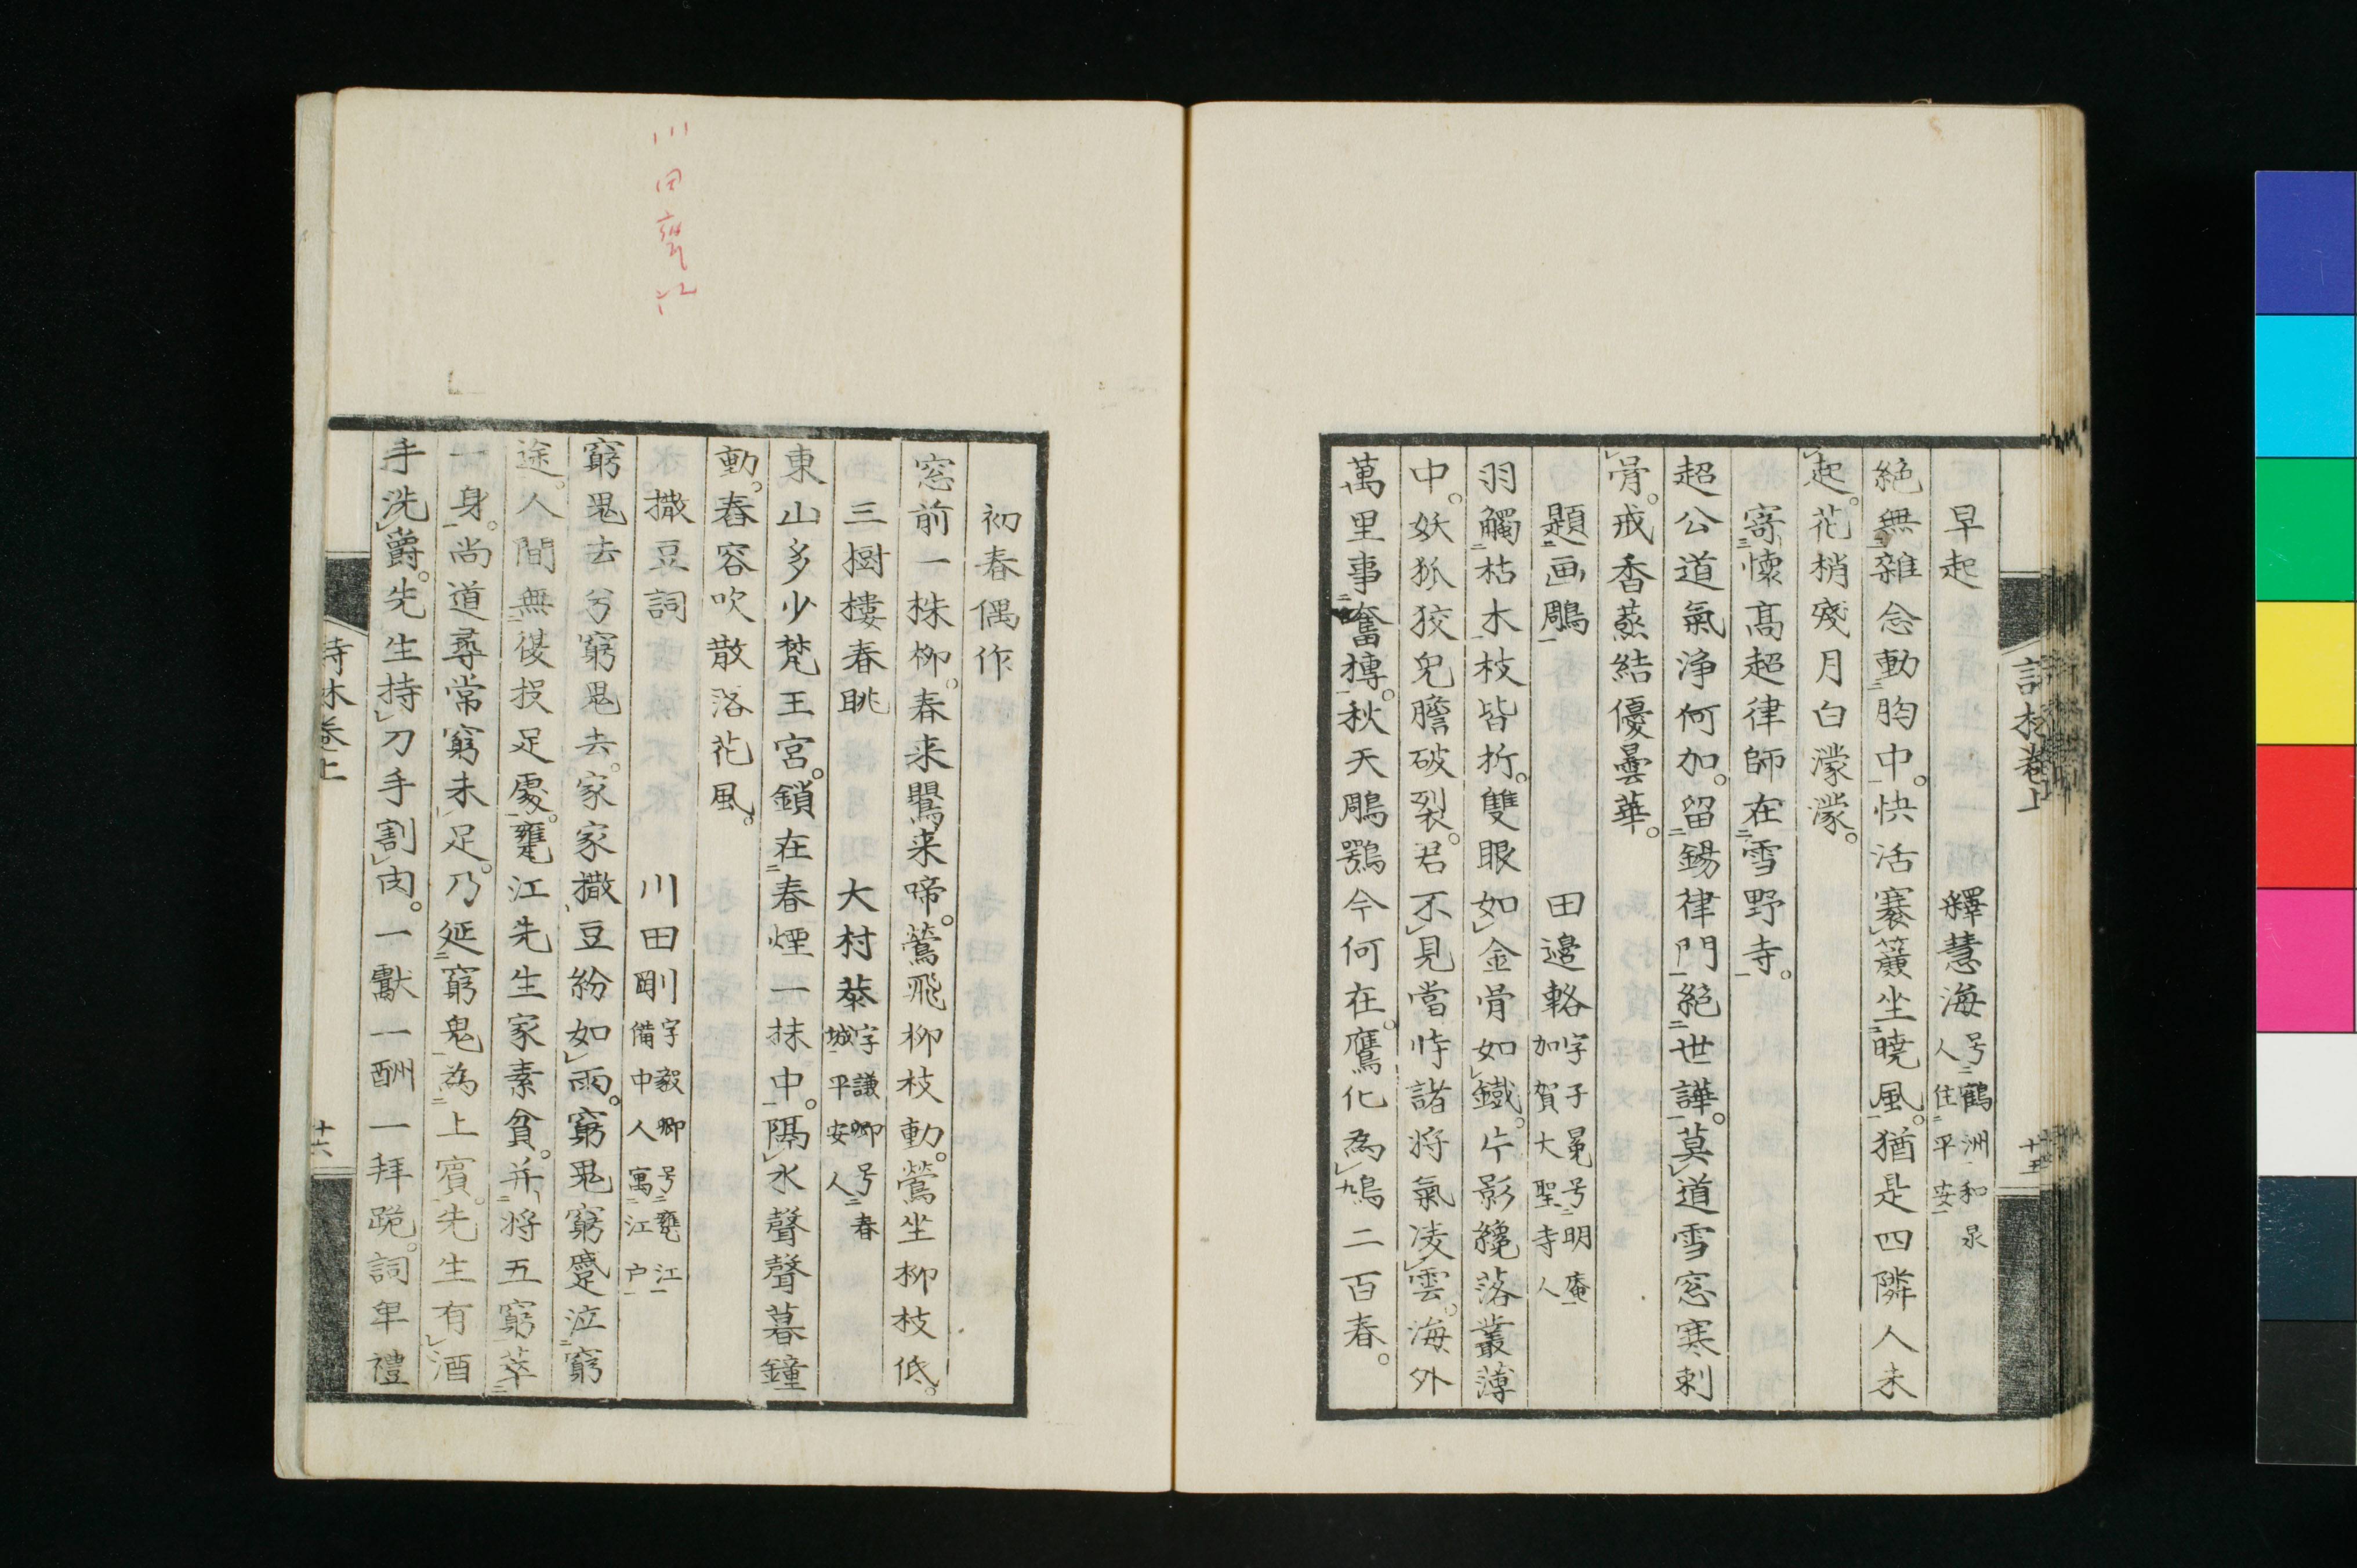 早起　釋慧海号鶴洲和泉人住平安
絶無雜念動胸中。快活褰簾坐曉風。猶是四隣人未
起。花梢殘月白濛濛。
寄懷高超律師在雪野寺。
超公道氣浄何加。留錫律門絕世譁。莫道雪窓寒刺
骨。戒香蒸結優曇華。
題画鵰　田邉輅字子冕号明庵加賀大聖寺人
羽觸枯木枝皆折。雙眼如金骨如鐵。片影纔落叢薄
中。妖狐狡兒膽破裂。君不見當時諸将氣凌雲。海外
萬里事奮摶。秋天鵰鶚今何在。鷹化為鳩二百春。
詩抄巻上　十五
初春偶作
窓前一株柳。春来鸎来啼。鶯飛柳枝動。鶯坐柳枝低。
三樹樓春眺　大村恭字謙卿号春城平安人
東山多少梵王宮。鎖在春煙一抹中。隔水聲聲暮鐘
動。春容吹散落花風。
撒豆詞　川田剛字毅卿号甕江備中人寓江戸
窮鬼去兮窮鬼去。家家撒豆紛如雨。窮鬼窮蹙泣窮
途。人間無復投足處。甕江先生家素貧。并将五窮萃
一身。尚道尋常窮未足。乃延窮鬼為上賓。先生有酒
手洗爵。先生持刀手割肉。一獻一酬一拜跪。詞卑禮
巻上　十六
川田甕江